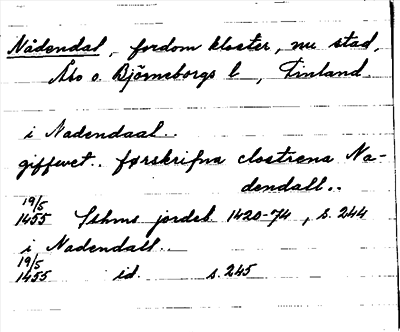 Nådendal, fordom kloster, nu stad,
Åbo o. Björneborgs l, Finland
i Nadendaal..
giffwet.. førskrifna clostrena Na-
dendall..
19/5
1455 Sthms jordeb. 1420-74, s. 244
i Nadendall..
19/5
1455 id. s. 245